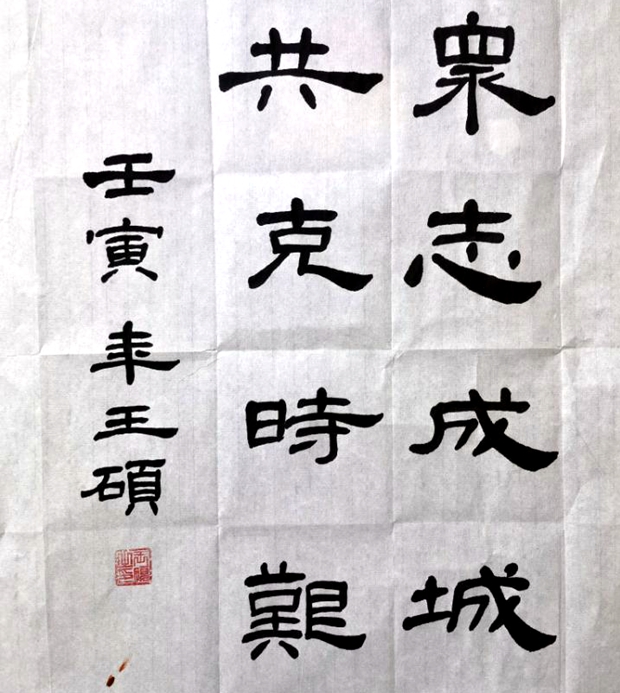 眾志成城
共克時艱
壬寅年王碩